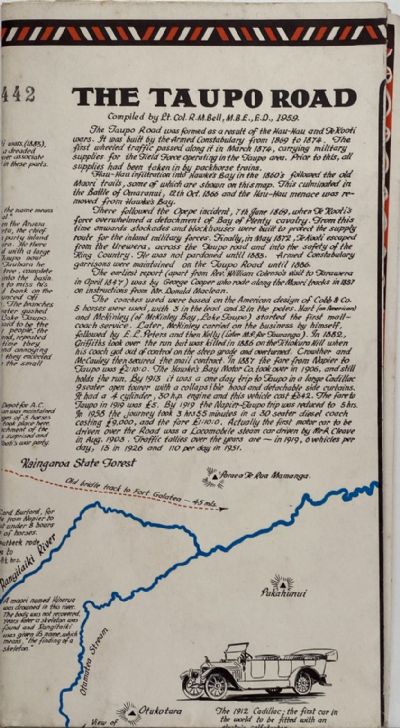 442
THE TAUPO ROAD
Compiled by Lt. Col. R.M.Bell, M.B.E., E.D., 1959.
The Taupo Road was formed as a result of the Hau-Hau and Te Kooti
wars. It was built by the Armed Constabulary from 1869 to 1874. The
first wheeled traffic passed along it in March 1874, carrying military
supplies for the Field Force operating in the Taupo area. Prior to this, all
supplies had been taken in by packhorse trains.
Hau-Hau infiltration into Hawke's Bay in the 1860's followed the old
Maori trails, some of which are shown on this map. This culminated in
the Battle of Omaranui, 12th Oct. 1866 and the Hau-Hau menace was re-
moved from Hawke's Bay.
There followed the Opepe incident, 7th June 1869, when Te Kooti's
force overwhelmed a detachment of Bay of Plenty cavalry. From this
time onwards stockades and blockhouses were built to protect the supply
route for the inland military forces. Finally, in May 1872, Te Kooti escaped
from the Urewera, across the Taupo road and into the safety of the
King Country. He was not pardoned until 1883. Armed Constabulary
garrisons were maintained on the Taupo Road until 1886.
The earliest report (apart from Rev. William Colenso's visit to Tarawera
in April 1847) was by George Cooper who rode along the Maori tracks in
on instructions from Mr. Donald Maclean.
The coaches used were based on the American design of Cobb & Co.
5 horses were used, with 3 in the lead and 2 in the poles. Hart
and McKinley (of McKinley Bay, Lake Taupo) started the first mail-
coach service. Later, McKinley carried on the business by himself,
followed by E. C. Peters and then Kelly (later M.P. for Tauranga). In 1882,
Griffiths took over the run but was killed in 1886 on the Titiokura Hill when
his coach got out of control on the steep grade and overturned. Crowther and
McCauley then secured the mail contract. In 1887 the fare from Napier to
Taupo was £2:10:0. The Hawke's Bay Motor Co. took over in 1906, and still
holds the run. By 1913 it was a one day trip to Taupo in a large Cadillac
9 seater open tourer with a collapsible hood and detachable side curtains.
It had a 4 cylinder, 30 h.p. engine and this vehicle cost £642. The fare to
Taupo in 1919 was £5. By 1919 the Napier-Taupo trip was reduced to 5 hrs.
In 1958 the journey took 3 hrs 55 minutes in a 30 seater diesel coach
costing £9,000, and the fare £1:10:0. Actually the first motor car to be
driven over the Road was a Locomobile steam car driven by Mr. Cleave
in Aug. 1903. Traffic tallies over the years are — in 1919, 6 vehicles per
day, 15 in 1926 and 110 per day in 1951.
Kaingaroa State Forest
Old bridle track to Fort Galatea – 45 mls.
Rangitaiki River
A maori named Hinerua
was drowned in this river.
The body was not recovered.
Years later a skeleton was
found and Rangitaiki
was given its name, which
means, "the finding of a
skeleton."
Pukahunui
Otamatea Stream
Otukotara
View of
The 1912 Cadillac; the first car in
the world to be fitted with an